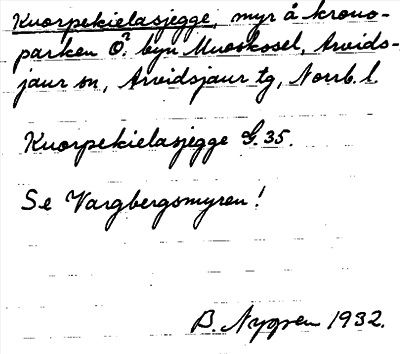 Kuorpekielasjegge, myr å krono-
parken Ö. byn Muoskosel, Arvids-
jaur sn, Arvidsjaur tg, Norrb. l.
Kuorpekielasjegge G. 35.
Se Vargbergsmyren!
B. Nygren 1932.